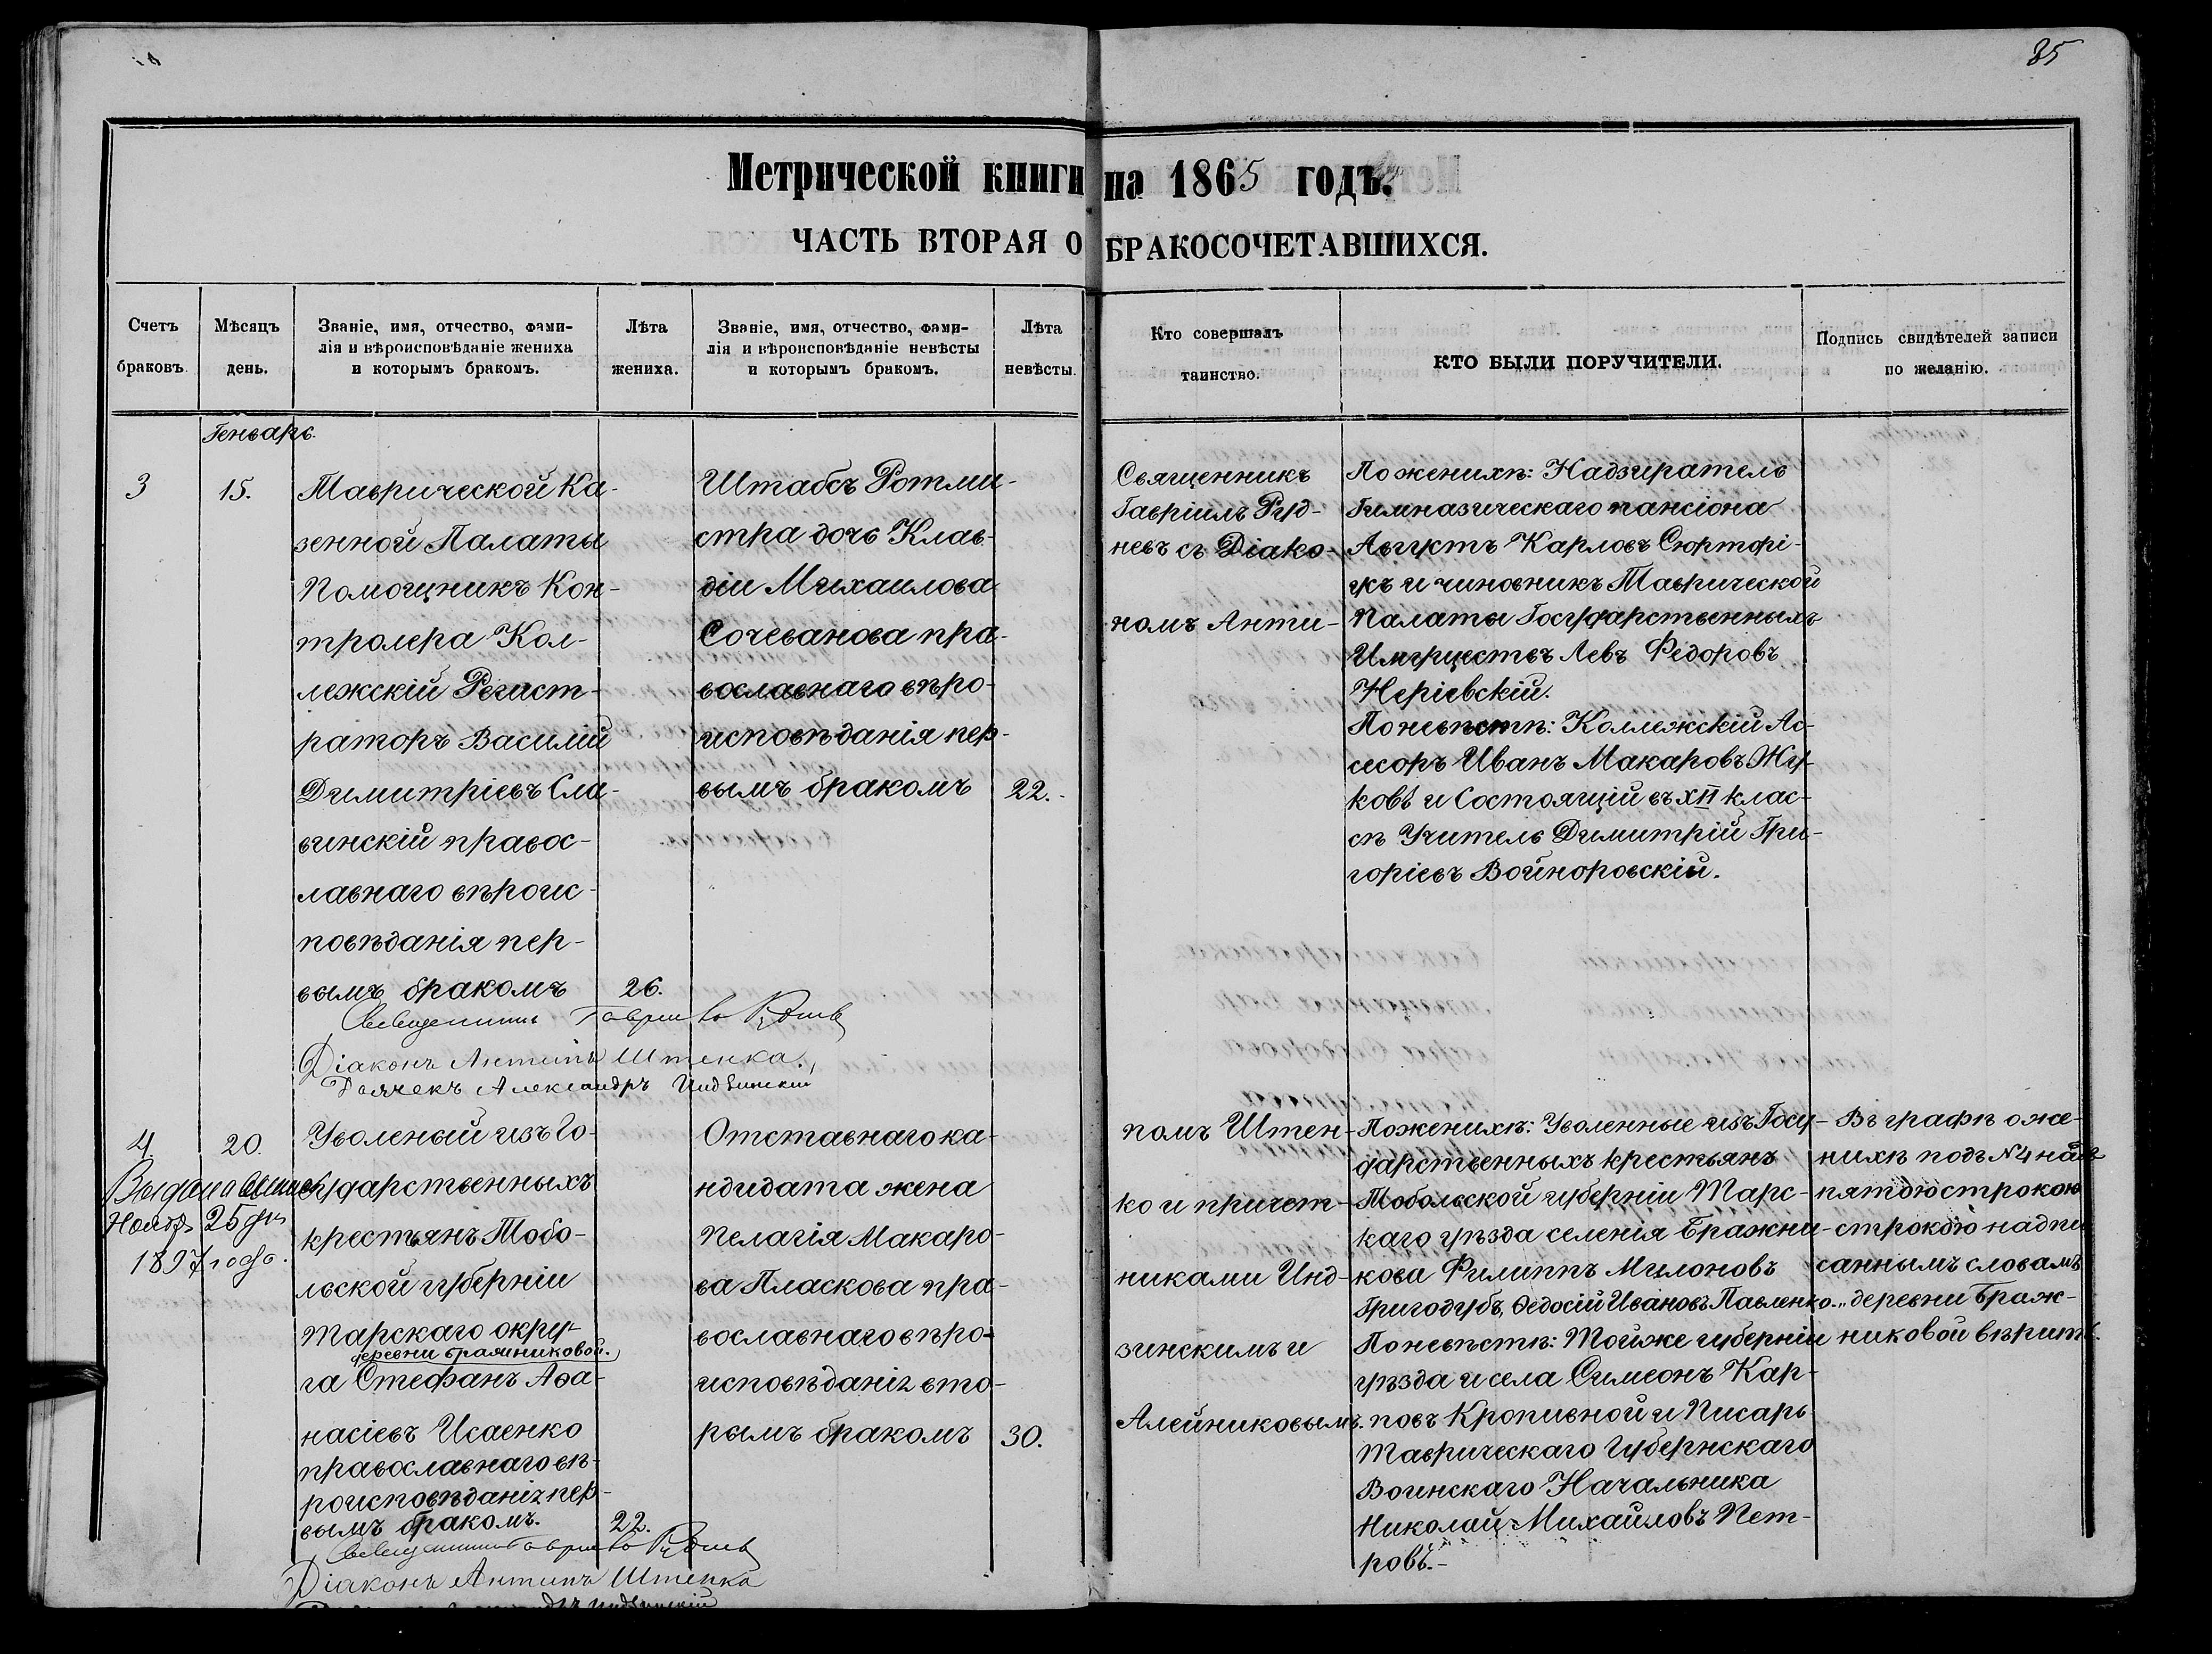 85
Метрической книги на 1865 годъ.
ЧАСТЬ ВТОРАЯ О БРАКОСОЧЕТАВШИХСЯ.
Счетъ
браковъ.
Мѣсяцъ
день.
Званіе, имя, отчество, фами-
лія и вѣроисповѣданіе жениха
и которымъ бракомъ.
Лѣта
жениха.
Званіе, имя, отчество, фами-
лія и вѣроисповѣданіе невѣсты
и которымъ бракомъ.
Лѣта
невѣсты.
Кто совершалъ
таинство.
КТО БЫЛИ ПОРУЧИТЕЛИ.
Подпись свидѣтелей записи
по желанію.
Генварь.
3
15.
Таврической Ка-
зенной Палаты
Помощникъ Кон-
тролера Кол-
лежскій Регист-
раторъ Василій
Димитріевъ Сла-
винскій правос-
лавнаго вѣроис-
повѣданія пер-
вымъ бракомъ
26.
Штабсъ Ротми-
стра дочь Клав-
діи Михаилова
Сочеванова пра-
вославнаго вѣро-
исповѣданія пер-
вымъ бракомъ
22.
Священникъ
Гавріилъ Руд-
невъ съ Діако-
номъ Анти-
По женихѣ: Надзиратель
Гимназическаго пансіона
Августъ Карловъ Сюртфі-
усъ и чиновникъ Таврической
Палаты Государственныхъ
Имуществъ Левъ Федоровъ
Неріевскій.
По невѣстѣ: Коллежскій Ас-
сесоръ Иванъ Макаровъ Жу-
ковъ и Состоящій въ XII клас-
сѣ Учитель Димитрій Гри-
горіевъ Войноровскій.
Діаконъ Антипъ Штепка.
Дьячекъ Александръ Индзинскій
4.
20.
Выдана
Ноябр. 25 дня
1897 года.
Уволеный изъ Го-
сударственныхъ
крестьянъ Тобо-
льской губерніи
Тарскаго окру-
деревни Бражниковой.
га Стефанъ Аѳа-
насіевъ Исаенко
православнаго вѣ-
роисповѣданія пер-
вымъ бракомъ.
22.
Отставнаго ка-
ндидата жена
Пелагія Макаро-
ва Пласкова пра-
вославнаго вѣро-
исповѣданія вто-
рымъ бракомъ
30.
помъ Штен-
ко и причет-
никами Инд-
зинскимъ и
Алейниковымъ.
По женихѣ: Уволенные изъ Госу-
дарственныхъ крестьянъ
Тобольской губерніи Тарс-
каго уѣзда селенія Бражни-
кова Филиппъ Милоновъ
Григодубъ, Ѳедосій Ивановъ Павленко.
По невѣстѣ: Той же губерніи
уѣзда и села Симеонъ Кар-
повъ Кропивной и Писарь
Таврическаго Губернскаго
Воинскаго Начальника
Николай Михайловъ Пет-
ровъ.-
Въ графѣ о же-
нихѣ подъ №4 надъ
пятою строкою
строкою надпи
саннымъ словамъ
„деревни Браж-
никовой вѣрить.
Діаконъ Антипъ Штепка